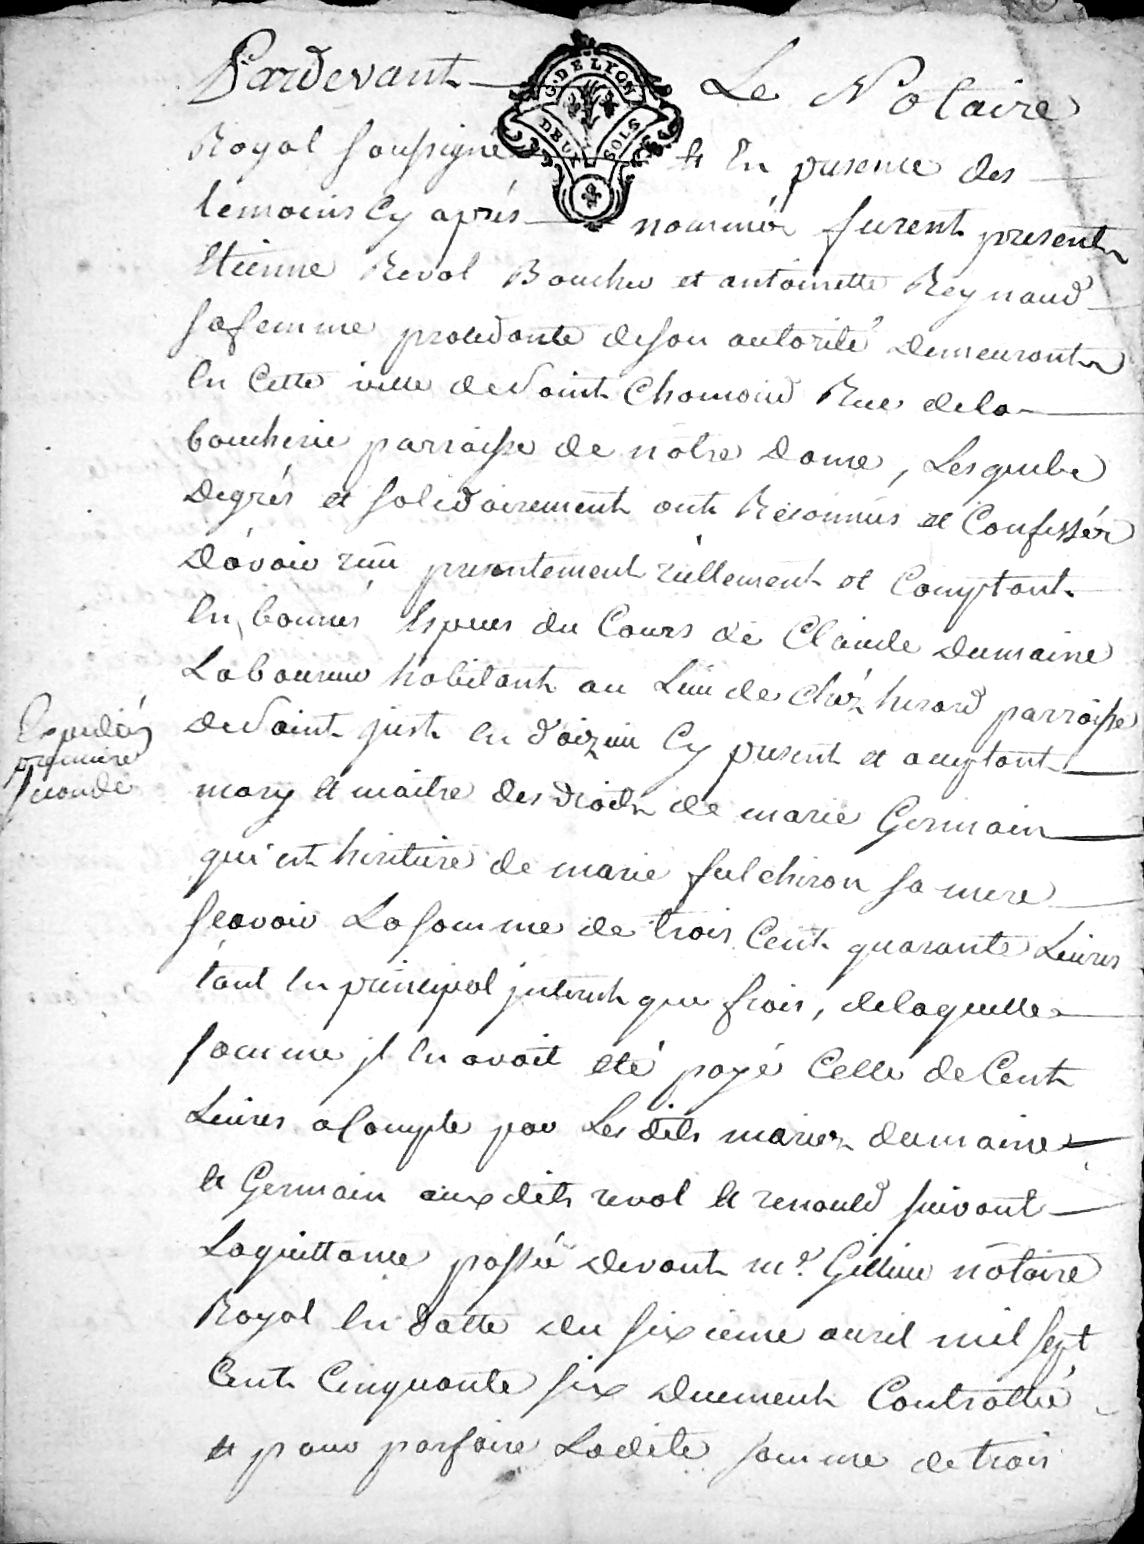 Pardevant Le Notaire
G. DE LYON
DEUX SOLS
Royal soussigné et En presence des
temoins cy aprés nommés furent presents
Etienne Revol Boucher et antoinette Reynaud
sa femme procedante de son autorité demeurants
En cette ville de Saint Chamond Rue de la
boucherie parroisse de nôtre dame, Lesquels
degrés et solidairement ont Reconnus et Confessés
d'avoir reçu presentement réellement et Comptant
En bonnes Especes du Cours de Claude dumaine
Laboureur habitant au Lieu de chéz herard parroisse
de Saint just en d'oizieu Cy present et acceptant
mary et maitre des droits de marie Germain
qui est heritiere de marie fulchiron sa mere
sçavoir La somme de trois Cent quarante Livres
tant en principal interest que frais, de laquelle
somme il En avoit eté payé Celle de Cent
Livres a Compte par Les dits mariez dumaine
et Germain aux dits revol et renauld suivant
La quittance passée devant me. notaire
Royal En datte du sixieme avril mil sept
Cent Cinquante six duement Controllé
et pour parfaire La dite somme de trois
Expediée
premiere
seconde